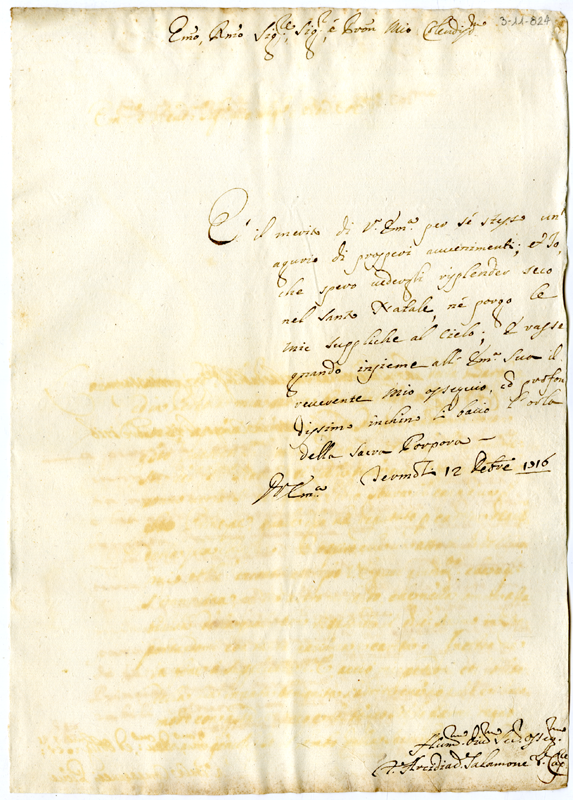 Emo, Rmo Sig.re Sig.r e Pron Mio Colendis.mo
3-11-824
E' il merito di V.ra Em.a per sé stesso un'
agurio di prosperi avvenimenti; et Io,
che spero vedergli risplender seco
nel Santo Natale, né porgo le
mie suppliche al Cielo; E rasse
gnando insieme all' Em.a Sua il
reverente mio ossequio, co profon
dissimo inchino Le bacio l'orlo
della Sacra Porpora –
Di V. Em.a Termoli 12 Xbre 1716
Hum.mo Ser.re osseq.mo
Arcidiac. Salamone